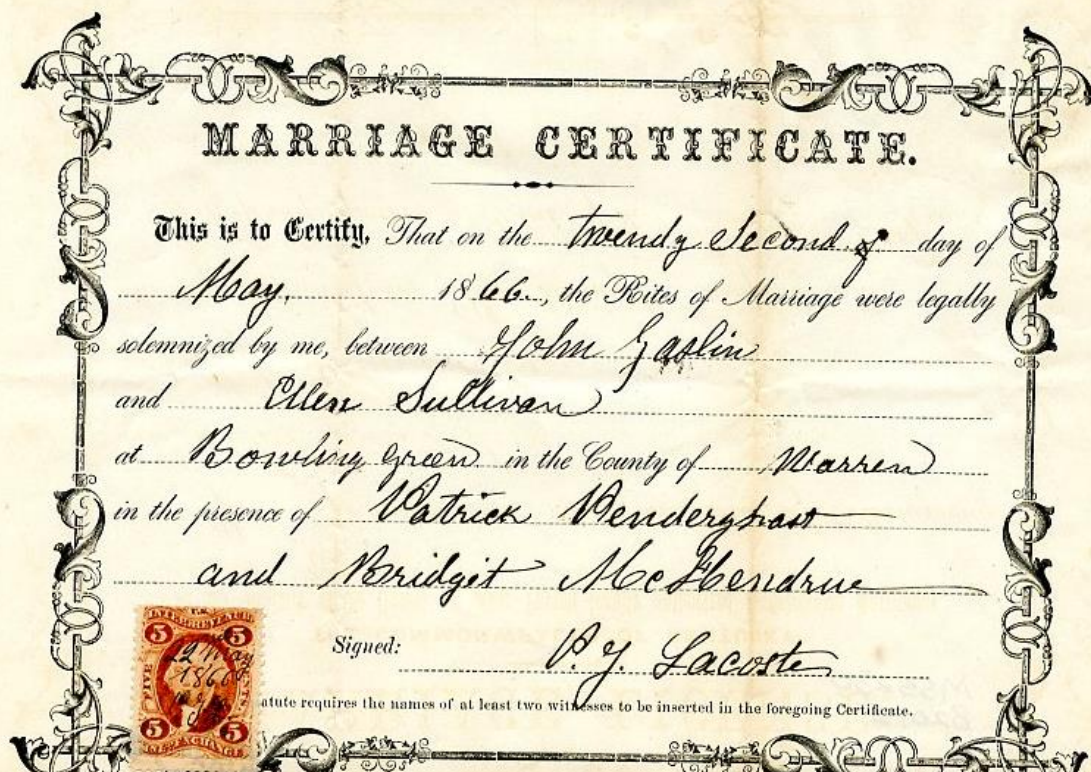 MARRIAGE CERTIFICATE.
This is to Certify, That on the twendy Second of day of
May, 1866, the Rites of Marriage were legally
solemnized by me, between John Gaslin
and Ellen Sullivan
at Bowling Green in the County of Warren
in the presence of Patrick Penderghast
and Bridgit
Signed: P. J. Lacoste
atute requires the names of at least two witnesses to be inserted in the foregoing Certificate.
U.S.
INTER. REVENUE
5 5
22 May
1866
FIVE CENTS
5 5